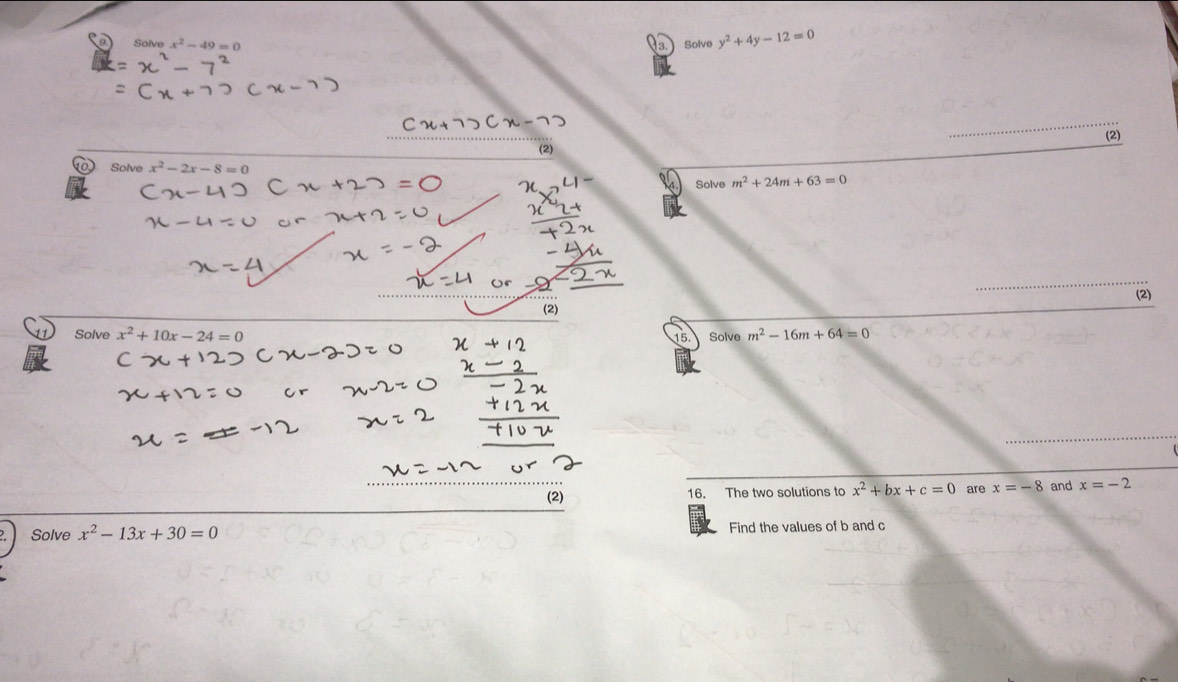 9. Solve x² − 49 = 0
= x² − 7²
= (x + 7) (x − 7)
(x+7)(x−7)
(2)
10. Solve x² − 2x − 8 = 0
(x−4) (x+2) = 0
x − 4 = 0 or x+2 = 0
x = 4 x = −2
x 4−
x 2+
+2x
−4x
−2x
x = 4 or −2
(2)
11 Solve x² + 10x − 24 = 0
(x+12) (x−2) = 0
x+12 = 0 or x−2 = 0
x = −12 x = 2
x +12
x − 2
− 2x
+12x
+10x
x = −12 or 2
(2)
2. Solve x² − 13x + 30 = 0
13. Solve y² + 4y − 12 = 0
(2)
14. Solve m² + 24m + 63 = 0
(2)
15. Solve m² − 16m + 64 = 0
16. The two solutions to x² + bx + c = 0 are x = − 8 and x = − 2
Find the values of b and c